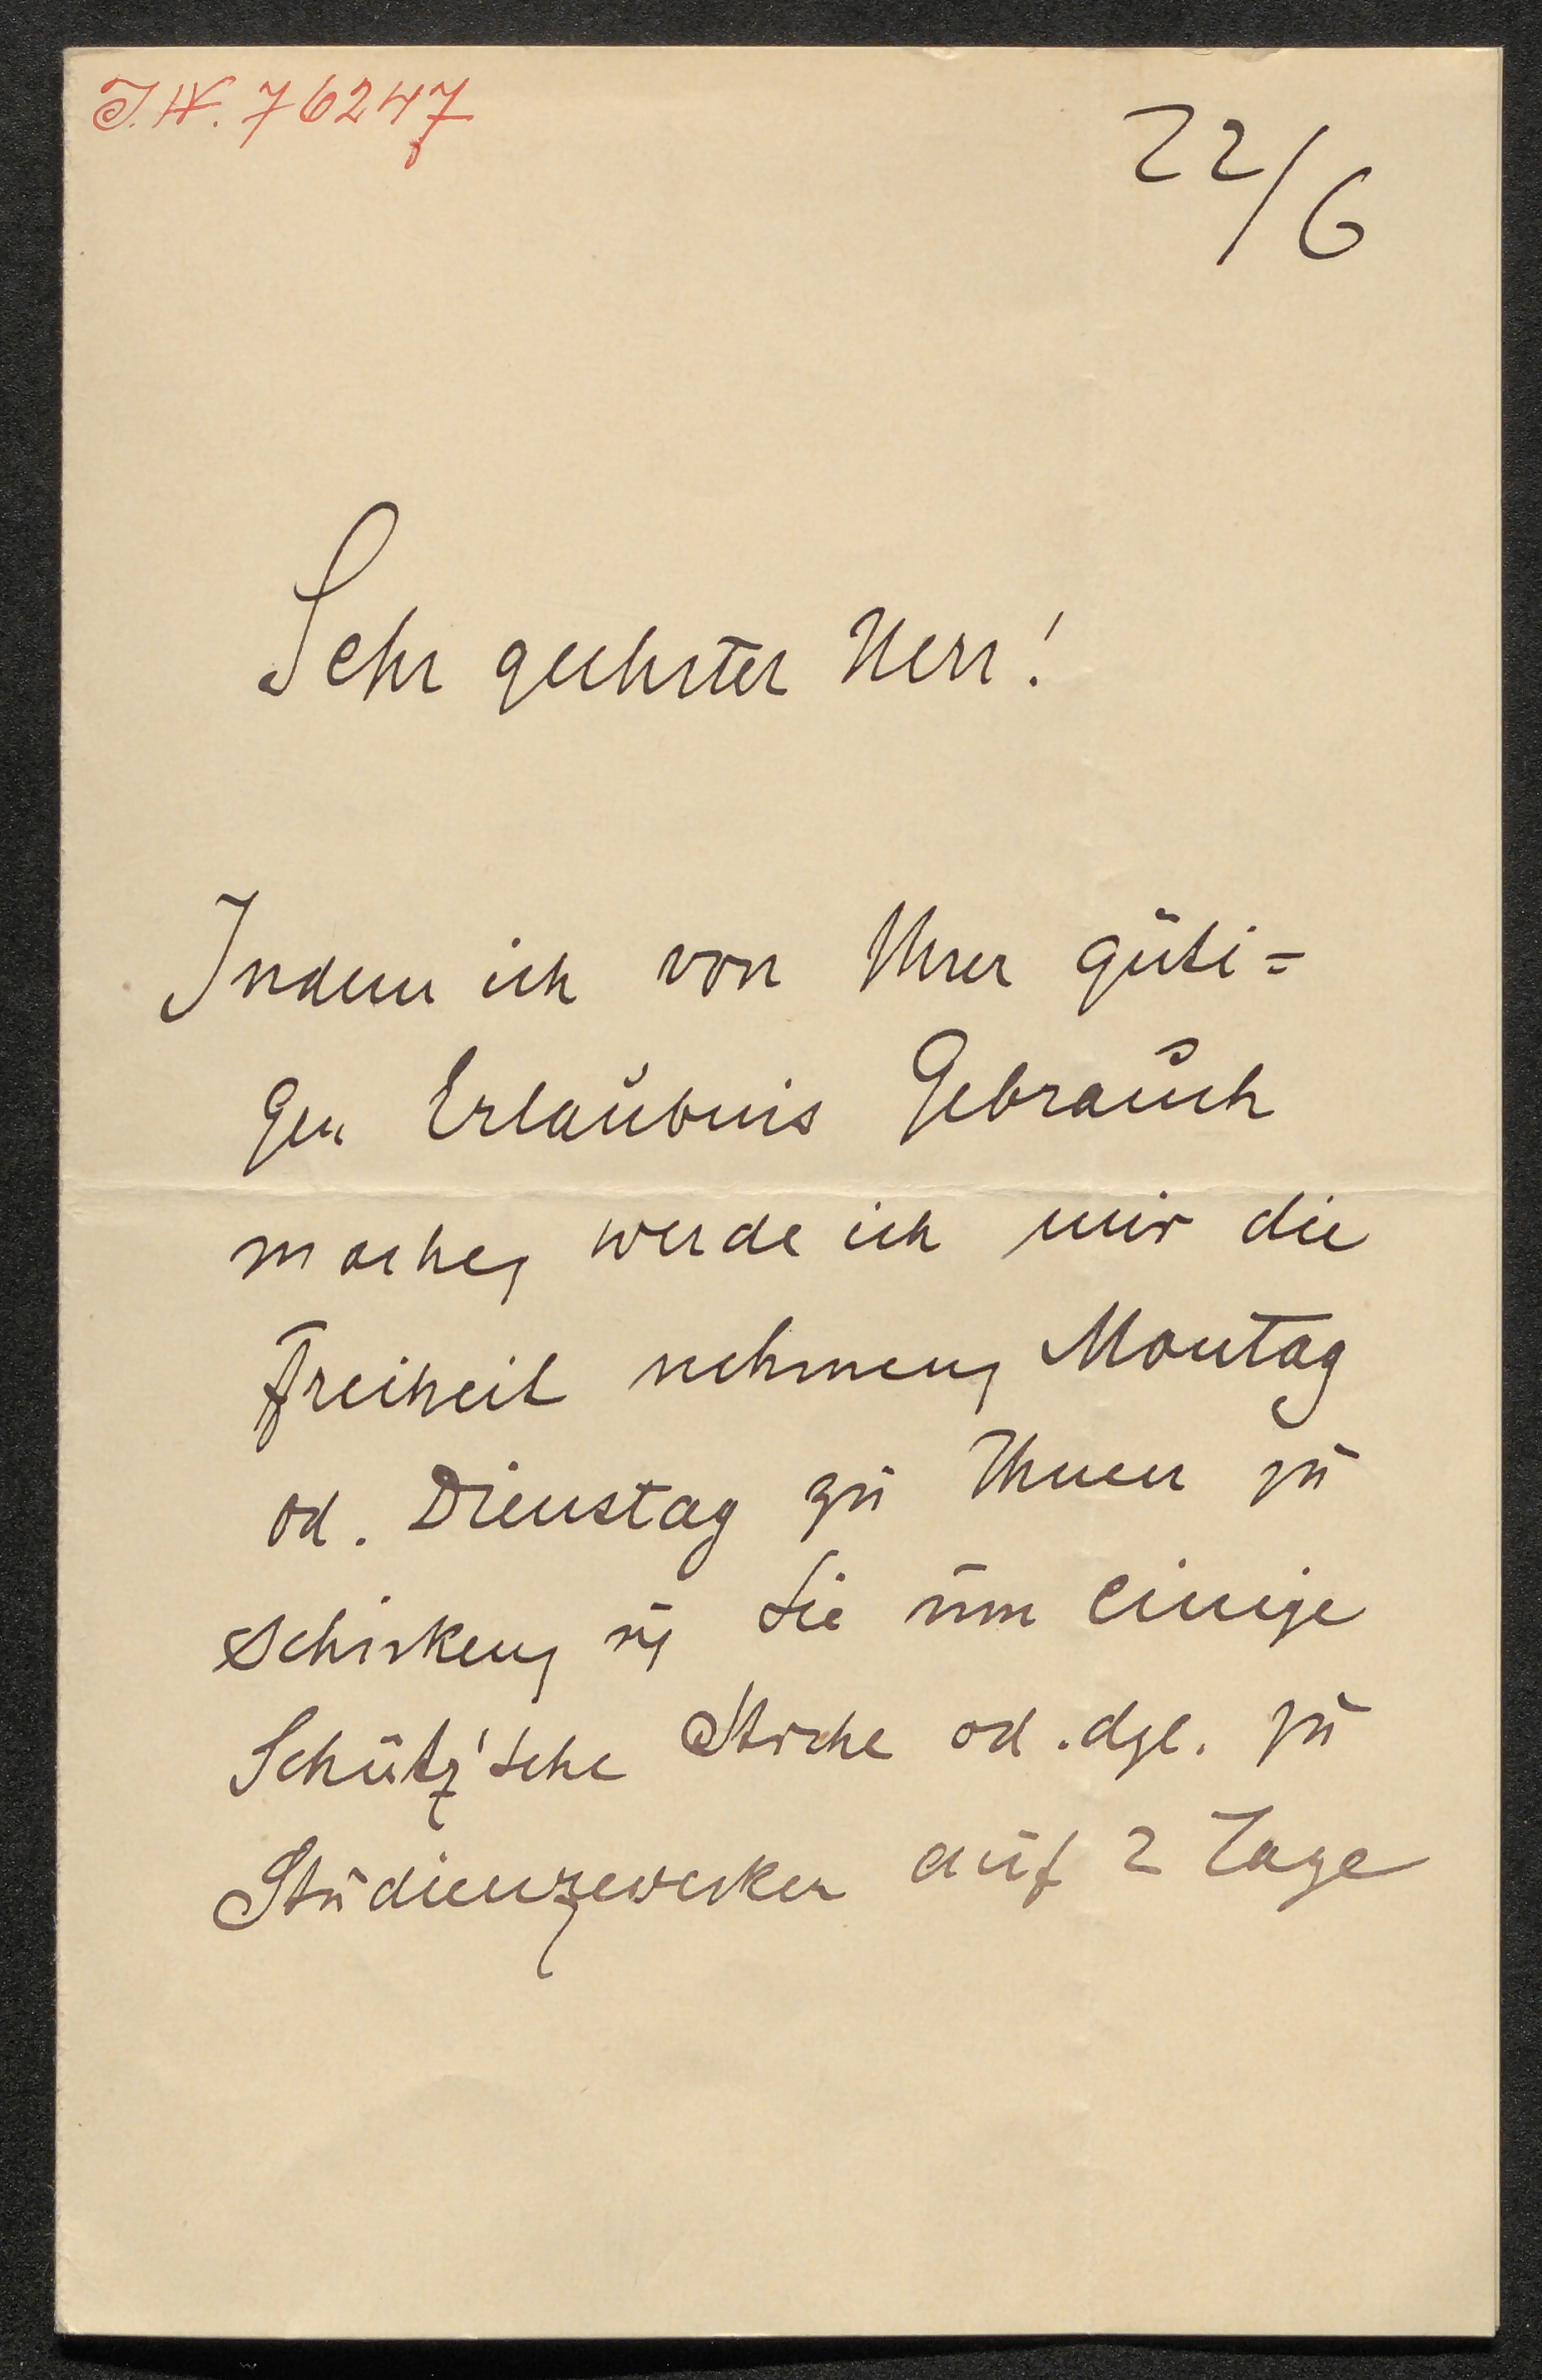 J.N. 76247
22/6
Sehr geehrter Herr!
Indem ich von Ihrer güti=
gen Erlaubnis Gebrauch
mache, werde ich mir die
Freiheit nehmen, Montag
od. Dienstag zu Ihnen zu
schicken, u, Sie um einige
Schütz'sche Stiche od. dgl. zu
Studienzwecken auf 2 Tage